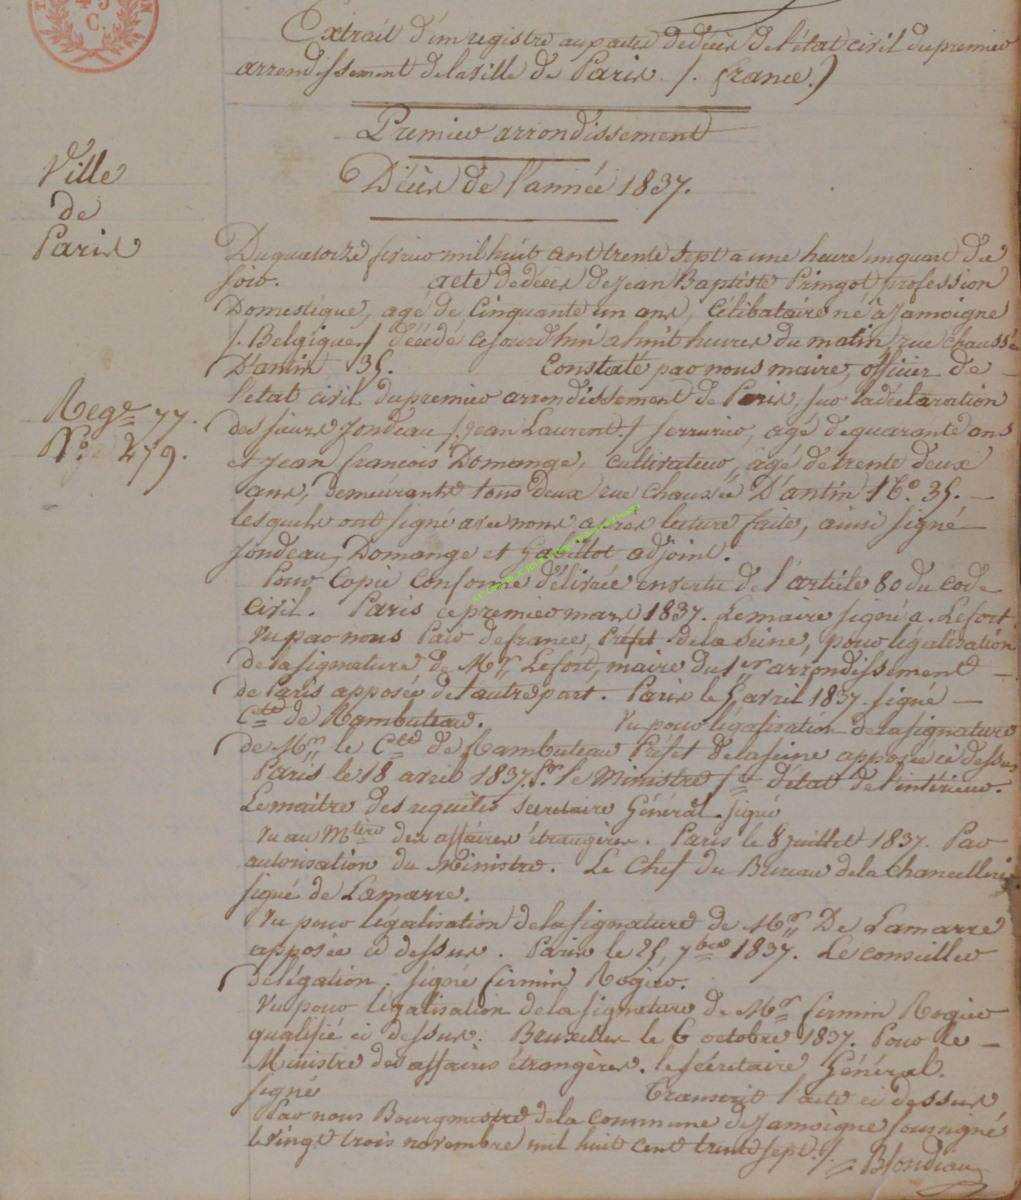 45
C.
Extrait d'un registre aux actes de décès de l'état civil du premier
arrondissement de la ville de Paris. /. france.)
Premier arrondissement
Décès de l'année 1837.
Ville
de
Paris
Du quatorze février mil huit cent trente sept a une heure un quart de
soir. acte de décès de Jean Baptiste Pringot profession
Domestique, agé de Cinquante un ans, Célibataire né à Jamoigne
/. Belgique / décédé cejourd'hui a huit heures du matin, rue chaussée
D'antin 35. Constaté par nous maire, officier de
l'état civil du premier arrondissement de Paris, sur la déclaration
des sieurs Jondeau /. Jean Laurent / serrurier, agé de quarante ans
et Jean françois Domange, cultivateur, agé de trente deux
ans, demeurants tous deux rue chaussée D'antin No. 35. —
lesquels ont signé avec nous après lecture faite, ainsi signé
Jondeau, Domange et Gabillot adjoint.
Regre 77.
No. 279.
Pour Copie conforme délivrée en vertu de l'article 80 du code
civil. Paris ce premier mars 1837. Le maire signé a. Lefort
Vu par nous Pair de france, Préfet de la Seine, pour légalisation
de la signature de Mr Lefort, maire du 1er arrondissement —
de Paris apposée de l'autre part. Paris le 5 avril 1837 signé —
Cte de Rambuteau. Vu pour légalisation de la signature
de Mr le Cte de Rambuteau Préfet de la seine apposée ci dessus
Paris le 18 avril 1837. Pr le Ministre Sre d'état de l'intérieur.
Le maître des requêtes secretaire Général. signé
Vu au Mtère des affaires étrangères. Paris le 8 juillet 1837. Par
autorisation du Ministre. Le Chef du Bureau de la Chancellerie
signé de Lamarre.
Vu pour légalisation de la signature de Mr De Lamarre
apposée ci dessus. Paris le 25, 7bre 1837. Le conseiller
de légation, signé firmin Rogier.
Vu pour légalisation de la signature de Mr firmin Rogier
qualifié ci dessus. Bruxelles le 6 octobre 1837. Pour le —
Ministre des affaires étrangères. le sécrétaire Général.
signé Transcrit l'acte ci dessus
Par nous Bourgmestre de la commune de Jamoigne soussigné
le vingt trois novembre mil huit cent trente sept. /. Blondiau